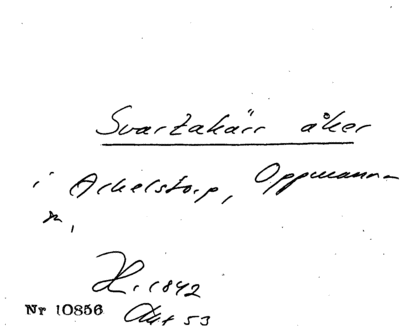 Svartakärr åker
i Arkelstorp, Oppmanna
H. 1842
Akt 53
Nr 10856